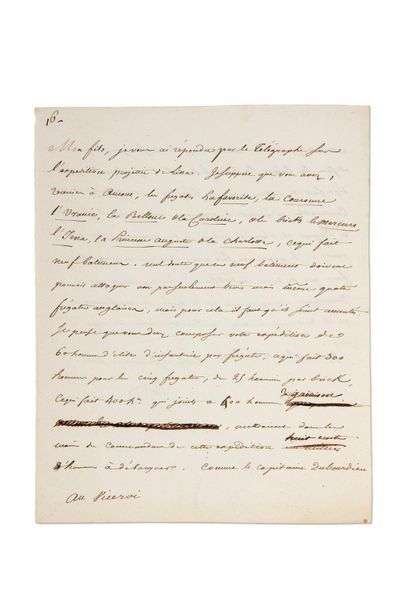 16 -
Mon fils, je vous ai répondu par le Télégraphe sur
l'expédition projettée de Lissa. Je suppose que vous avez
réunies à Ancone, les frégates la favorite, la Couronne
l'Uranie, la Bellone et la Caroline, et les bricks le mercure
l'Iena, la Princesse auguste et la Charlotte, ce qui fait
neuf bâtimens. nul doute que ces neuf bâtimens doivent
pouvoir attaquer non seulement trois mais même quatre
frégates anglaises, mais pour cela il faut qu'ils soient
Je pense que vous devez composer votre expédition de
60 hommes d'élite d'infanterie par frégate, ce qui fait 300
hommes pour les cinq frégates, de 25 hommes par brick,
Ce qui fait 400 h. qui joints à 400 hommes de garnison
, mettraient dans les
mains du Commandant de cette expédition huit cents
d'hommes à débarquer. Comme le capitaine Dubourdieu
Au Viceroi